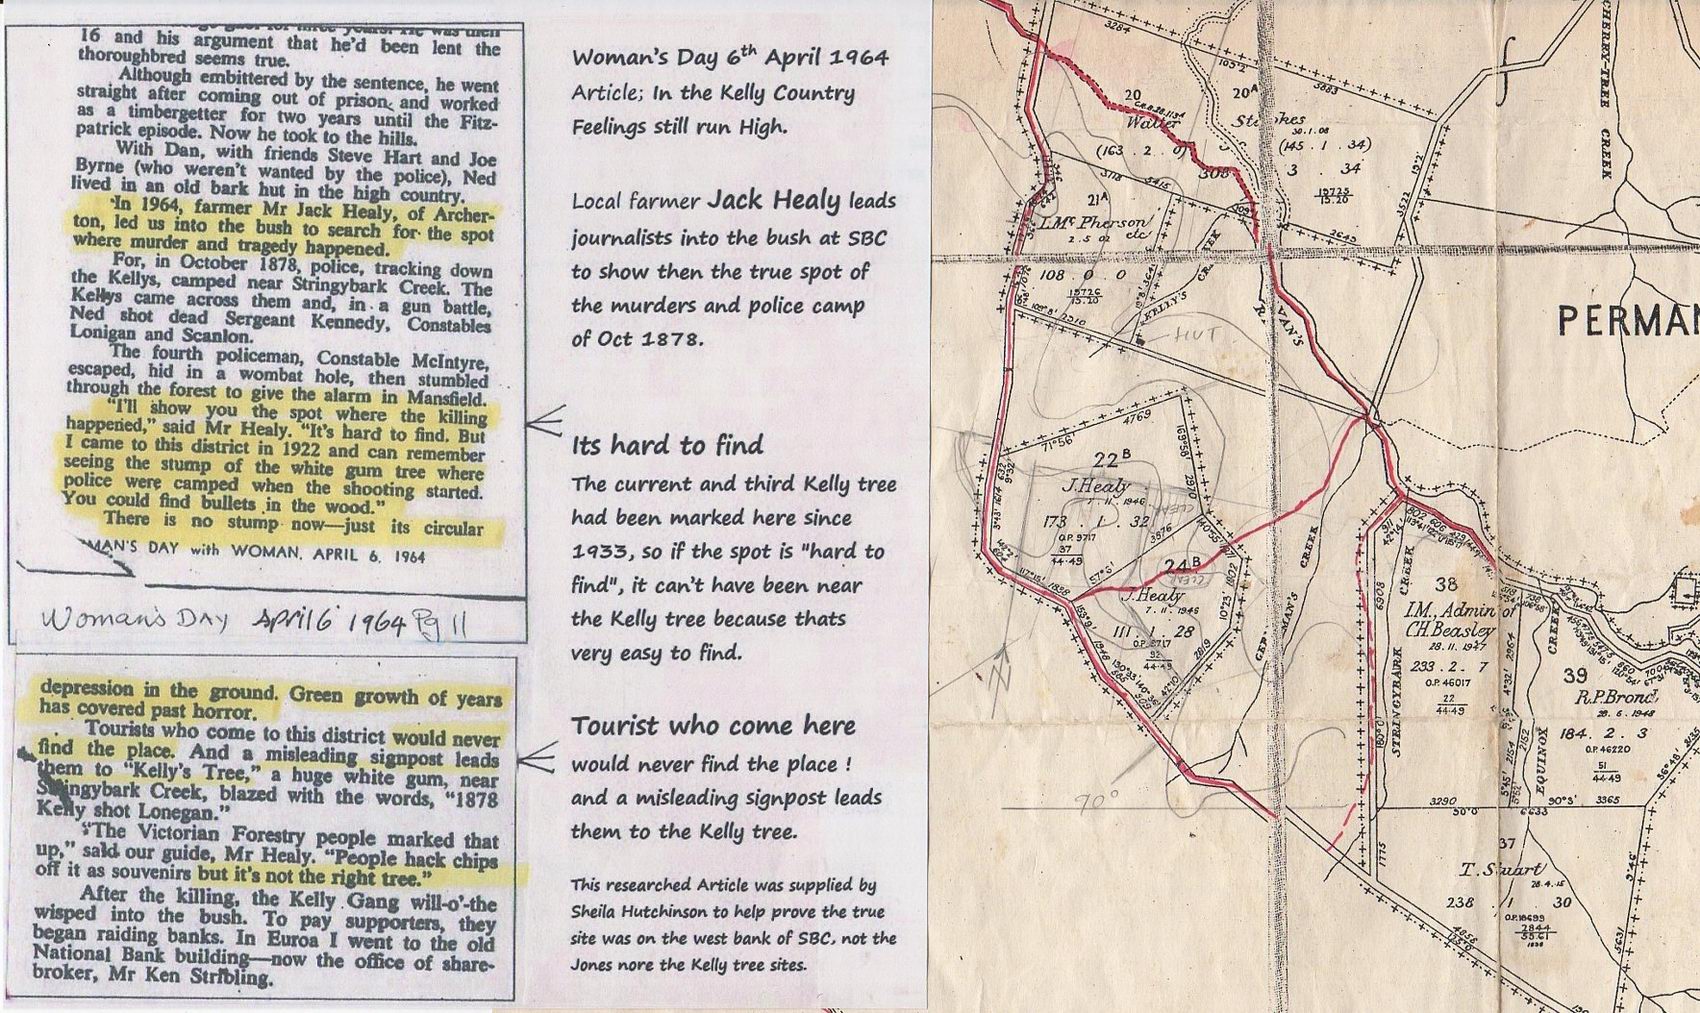 16 and his argument that he'd been lent the
thoroughbred seems true.
Although embittered by the sentence, he went
straight after coming out of prison and worked
as a timbergetter for two years until the Fitz-
patrick episode. Now he took to the hills.
With Dan, with friends Steve Hart and Joe
Byrne (who weren't wanted by the police), Ned
lived in an old bark hut in the high country.
In 1964, farmer Mr Jack Healy, of Archer-
ton, led us into the bush to search for the spot
where murder and tragedy happened.
For, in October 1878, police, tracking down
the Kellys, camped near Stringybark Creek. The
Kellys came across them and, in a gun battle,
Ned shot dead Sergeant Kennedy, Constables
Lonigan and Scanlon.
The fourth policeman, Constable McIntyre,
escaped, hid in a wombat hole, then stumbled
through the forest to give the alarm in Mansfield.
"I'll show you the spot where the killing
happened," said Mr Healy. "It's hard to find. But
I came to this district in 1922 and can remember
seeing the stump of the white gum tree where
police were camped when the shooting started.
You could find bullets in the wood."
There is no stump now—just its circular
MAN'S DAY with WOMAN, APRIL 6, 1964
Woman's Day April 6 1964 Pg 11
depression in the ground. Green growth of years
has covered past horror.
Tourists who come to this district would never
find the place. And a misleading signpost leads
them to "Kelly's Tree," a huge white gum, near
Stringybark Creek, blazed with the words, "1878
Kelly shot Lonegan."
"The Victorian Forestry people marked that
up," said our guide, Mr Healy. "People hack chips
off it as souvenirs but it's not the right tree."
After the killing, the Kelly Gang will-o'-the
wisped into the bush. To pay supporters, they
began raiding banks. In Euroa I went to the old
National Bank building—now the office of share-
broker, Mr Ken Stribling.
Woman's Day 6th April 1964
Article; In the Kelly Country
Feelings still run High.
Local farmer Jack Healy leads
journalists into the bush at SBC
to show then the true spot of
the murders and police camp
of Oct 1878.
Its hard to find
The current and third Kelly tree
had been marked here since
1933, so if the spot is "hard to
find", it can't have been near
the Kelly tree because thats
very easy to find.
Tourist who come here
would never find the place !
and a misleading signpost leads
them to the Kelly tree.
This researched Article was supplied by
Sheila Hutchinson to help prove the true
site was on the west bank of SBC, not the
Jones nore the Kelly tree sites.
3284
1052
3883
20
Walter
(163 . 2 . 0)
308
20A
Stokes
30.1.08
(145 . 1 . 34)
3 . 34
15725
15.20
CHERREY-TREE CREEK
3522
1972
2649
3118
5415
21A
I. McPherson
2.5.02 etc
108 . 0 . 0
15726
15.20
2310
KELLY'S CREEK
HUT
RYAN'S
PERMAN
71°56'
4769
169°56'
2970
22B
J. Healy
7.11.1946
173 . 1 . 32
O.P. 9717
37
44·49
3976
57°5'
CLEAR
24B
CLEAR
J. Healy
7.11.1946
111 . 1 . 28
O.P. 9717
92
44·49
1838
1902
10°23'
2019
GERMAN'S CREEK
90°
STRINGYBARK CREEK
6908
180°0'
1775
38
I.M., Admin of
C.H. Beasley
28.11.1947
233 . 2 . 7
O.P. 46017
22
44·49
2964
4°32'
EQUINOX CREEK
39
R.P. Brond,
28.6.1948
184 . 2 . 3
O.P. 46220
51
44·49
3290
90°0'
6633
90°3'
3365
37
T. Stuart
28.4.15
238 . 1 . 30
O.P. 18699
2844
55.61
5631